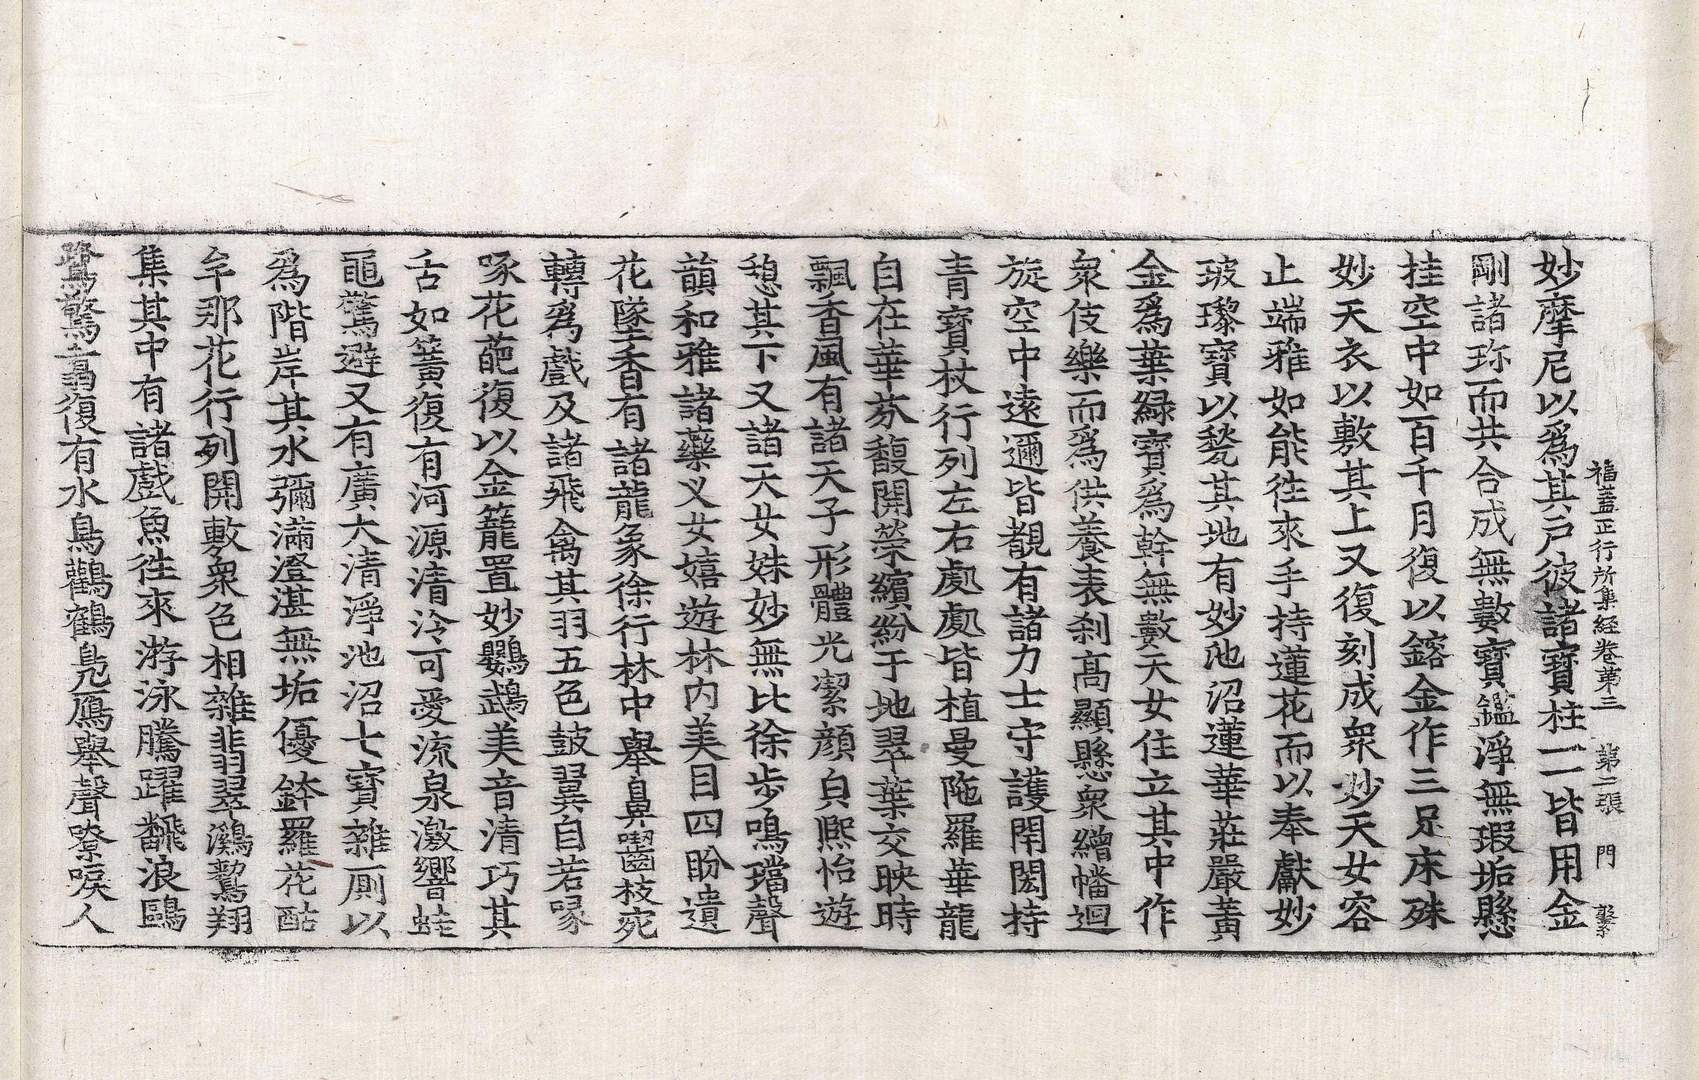 福蓋正行所集經卷第三 第二張 門
妙摩尼以爲其戶彼諸寶柱一一皆用金
剛諸珎而共合成無數寶鑑淨無瑕垢懸
挂空中如百千月復以鎔金作三足床殊
妙天衣以敷其上又復刻成衆妙天女容
止端雅如能徃來手持蓮花而以奉獻妙
玻瓈寶以甃其地有妙池沼蓮華莊嚴黃
金爲葉綠寶爲幹無數天女住立其中作
衆伎樂而爲供養表刹高顯懸衆繒幡迴
旋空中遠邇皆覩有諸力士守護門閫持
青寶杖行列左右處處皆植曼陁羅華龍
自在華芬馥開榮繽紛于地翠葉交映時
飄香風有諸天子形體光潔顔皃熙怡遊
憩其下又諸天女姝妙無比徐步鳴璫聲
韻和雅諸藥叉女嬉遊林內美目四盼遺
花墜香有諸龍象徐行林中舉鼻齧枝宛
轉爲戲及諸飛禽其羽五色鼓翼自若喙
啄花葩復以金籠置妙鸚鵡美音清巧其
舌如簧復有河源清泠可愛流泉激響蛙
黽驚避又有廣大清淨池沼七寶雜厠以
爲階岸其水彌滿澄湛無垢優鉢羅花酤
牟那花行列開敷衆色相雜翡翠鸂鷘翔
集其中有諸戲魚徃來游泳騰躍飜浪鷗
鷺驚翥復有水鳥鸛鶴鳧鴈舉聲嘹唳人